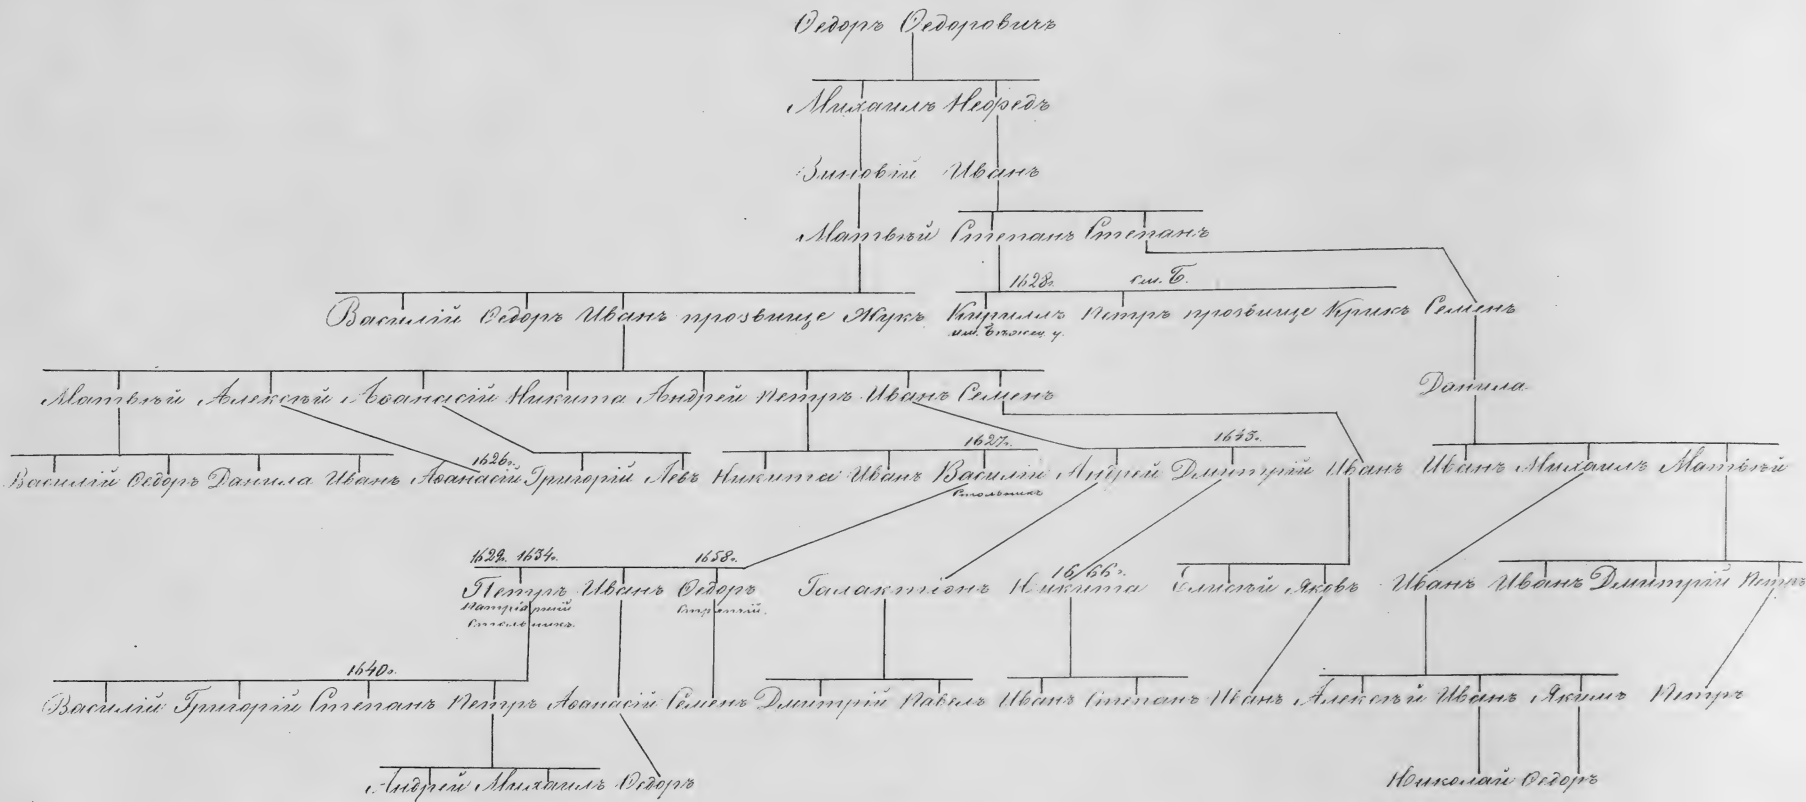 Ѳедоръ Ѳедоровичъ
Михаилъ Нефедъ
Зиновій Иванъ
Матвѣй Степанъ Степанъ
1628г. см. Б.
Василій Ѳедоръ Иванъ прозвище Жукъ Кириллъ Петръ прозвище Крикъ Семенъ
Матвѣй Алексѣй Аѳанасій Никита Андрей Петръ Иванъ Семенъ Данила
1626г. 1627г. 1645г.
Василій Ѳедоръ Данила Иванъ Аѳанасій Григорій Левъ Никита Иванъ Василій Андрей Дмитрій Иванъ Иванъ Михаилъ Матвѣй
Стольникъ
1629г. 1634г. 1658г. 1666г.
Петръ Иванъ Ѳедоръ Галактіонъ Никита Елисѣй Яковъ Иванъ Иванъ Дмитрій Петръ
Патріаршій Стряпчій
Стольникъ
1640г.
Василій Григорій Степанъ Петръ Аѳанасій Семенъ Дмитрій Павелъ Иванъ Степанъ Иванъ Алексѣй Иванъ Якимъ Петръ
Андрей Михаилъ Ѳедоръ Николай Ѳедоръ